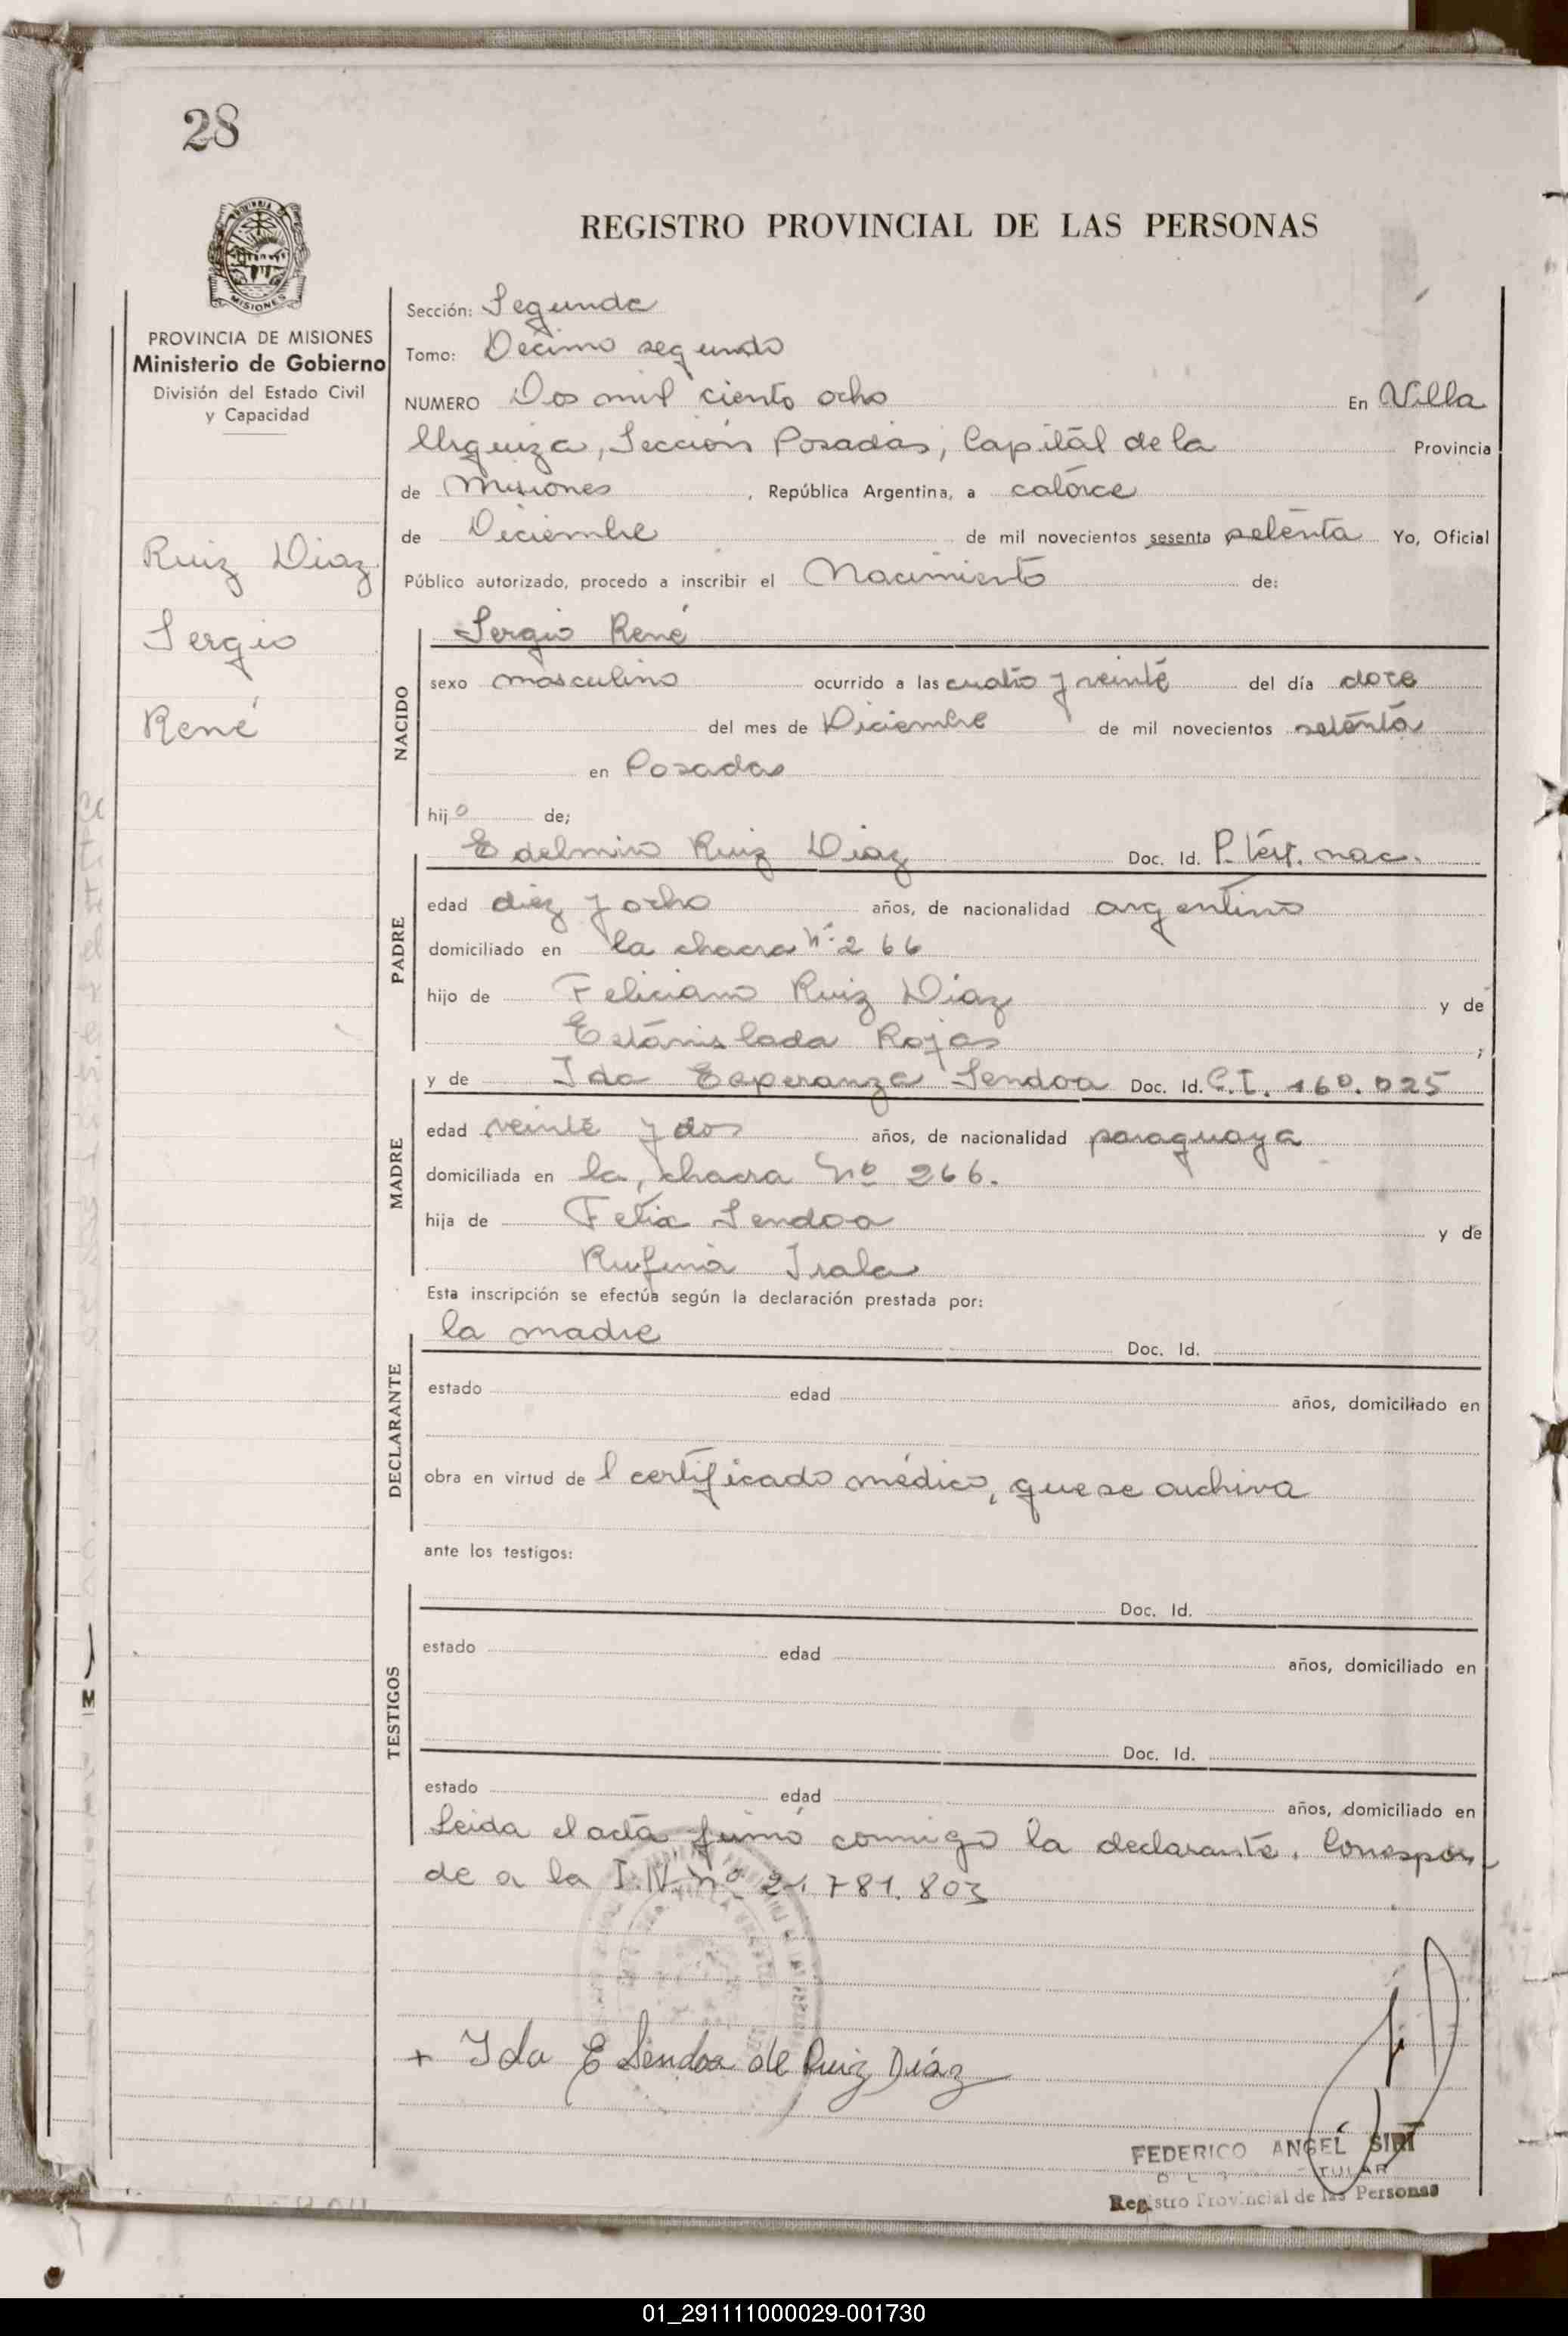 28
REGISTRO PROVINCIAL DE LAS PERSONAS
MISIONES
PROVINCIA DE MISIONES
Ministerio de Gobierno
División del Estado Civil
y Capacidad
Ruiz Diaz
Sergio
René
Sección: Segunda
Tomo: Decimo segundo
NUMERO Dos mil ciento ocho En Villa
Urquiza, Sección Posadas, Capital de la Provincia
de Misiones, República Argentina, a catorce
de Diciembre de mil novecientos sesenta setenta Yo, Oficial
Público autorizado, procedo a inscribir el Nacimiento de:
NACIDO
Sergio René
sexo masculino ocurrido a las cuatro y veinte del día doce
del mes de Diciembre de mil novecientos setenta
en Posadas
hijo de;
PADRE
Edelmiro Ruiz Diaz Doc. Id. P. Test. nac.
edad diez y ocho años, de nacionalidad argentino
domiciliado en la chacra Nº 266
hijo de Feliciano Ruiz Diaz y de
Estanislada Rojas;
MADRE
y de Ida Esperanza Sendoa Doc. Id. C.I. 160.025
edad veinte y dos años, de nacionalidad paraguaya
domiciliada en la, chacra Nº 266.
hija de Felix Sendoa y de
Rufina Irala
Esta inscripción se efectúa según la declaración prestada por:
DECLARANTE
la madre Doc. Id.
estado edad años, domiciliado en
obra en virtud de l certificado médico, que se archiva
ante los testigos:
TESTIGOS
Doc. Id.
estado edad años, domiciliado en
Doc. Id.
estado edad años, domiciliado en
Leida el acta firmó conmigo la declarante. Correspon-
de a la I.N. nº 21.781.803
+ Ida E Sendoa de Ruiz Díaz
FEDERICO ANGEL SIRI
Registro Provincial de las Personas
M
01_291111000029-001730